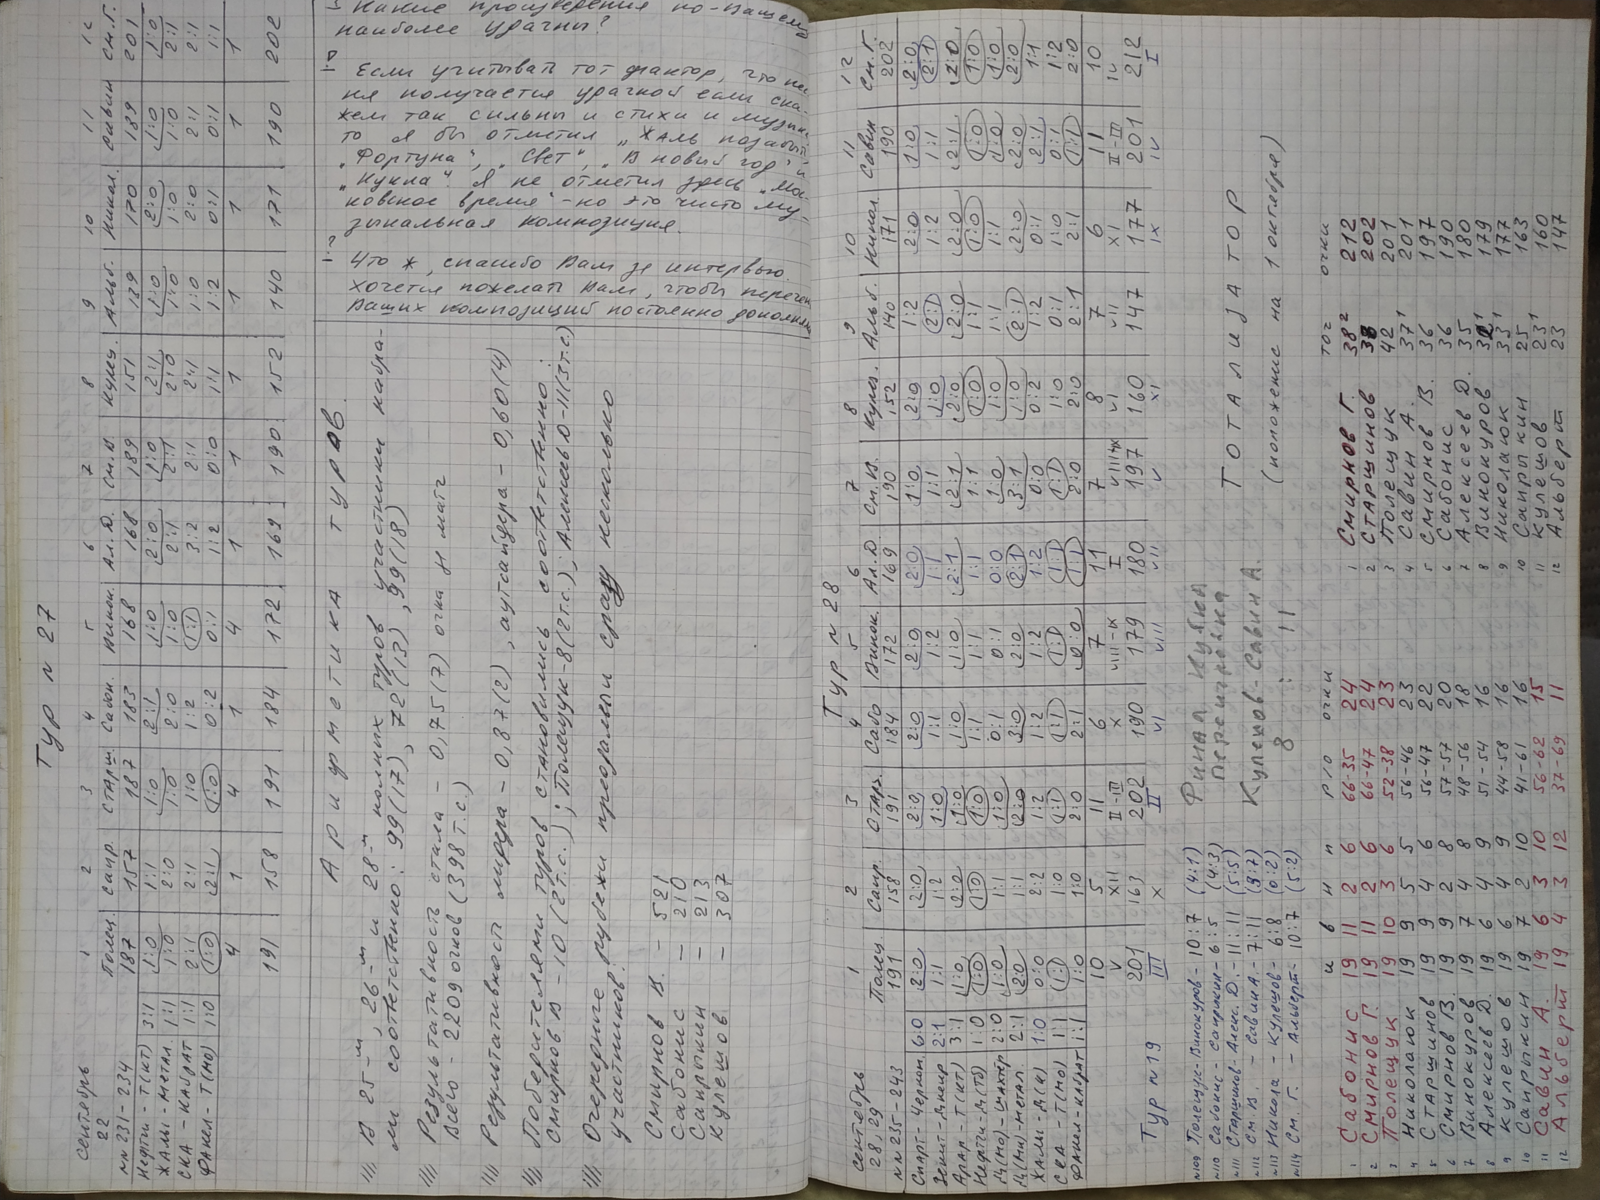 Тур n 27
сентябрь 1 2 3 4 5 6 7 8 9 10 11 12
22 Полещ. Саир. Старш. Сабон. Винок. Ал.Д. См.В Кулеш. Альб. Никол. Савин См.Г.
nn 231-234 187 157 187 183 168 168 189 151 139 170 189 201
Нефтчи - Т(КТ) 3:1 1:0 1:1 1:0 2:1 1:0 2:0 1:0 2:1 1:0 2:0 1:0 1:0
ЖАМЫ - МЕТАЛ 1:1 1:0 2:0 1:0 2:0 1:0 2:1 2:1 2:0 1:0 1:0 1:0 2:1
СКА - КАЙРАТ 1:1 2:1 2:1 1:0 1:2 1:1 3:2 2:1 2:1 1:0 2:0 2:1 2:1
ФАКЕЛ - Т(МО) 1:0 1:0 2:1 1:0 0:2 0:1 1:2 0:0 1:1 1:2 0:1 0:1 1:1
4 1 4 1 4 1 1 1 1 1 1 1
191 158 191 184 172 169 190 152 140 171 190 202
Арифметика туров
В 25-м, 26-м и 28-м полных туров участники набра-
ли соответственно: 99(17), 72(13), 99(18)
Результативность стала - 0,75(7) очка за матч
Всего - 2209 очков (398 т.с.)
Результативность лидера - 0,87(2), аутсайдера - 0,60(4)
Победителями туров становились соответственно:
Смирнов В - 10 (2 т.с.); Полещук - 8 (2 т.с.); Алексеев Д - 11 (3 т.с)
Очередные рубежи преодолели сразу несколько
участников:
Смирнов В. - 521
Сабонис - 210
Саирыкин - 213
Кулешов - 307
Какие произведения по-вашему
наиболее удачны?
Если учитывать тот фактор, что пе
ня получается удачной если ска
жем так сильны и стихи и музыка
то я бы отметил „Жаль позабыт
„Фортуна“, „Свет“, „В новый год“ и
„Кукла“. Я не отметил здесь „Мос
ковское время“ - но это чисто му
зыкальная композиция.
Что ж, спасибо Вам за интервью.
Хочется пожелать Вам, чтобы перечен
Ваших композиций постоянно дополнял
Тур n 28
сентябрь 1 2 3 4 5 6 7 8 9 10 11 12
28, 29 Полещ Саир. Старш. Сабо Винок. Ал.Д См.В. Кулеш. Альб. Никол. Савин См.Г.
nn 235-243 191 158 191 184 172 169 190 152 140 171 190 202
Спарт - Черном 6:0 2:0 2:0 2:0 2:0 2:0 2:0 1:0 2:0 1:2 2:0 1:0 2:0
Зенит - Днепр 2:1 1:1 1:2 1:0 1:1 1:2 1:1 1:1 1:0 2:1 1:2 1:1 2:1
Арар - Т(КТ) 3:1 1:0 2:0 1:0 1:0 1:0 2:1 2:1 2:0 2:0 2:0 2:1 2:0
Нефтчи - Д(Тб) 1:0 1:0 1:0 1:0 1:1 1:1 1:1 1:1 1:0 1:1 1:0 1:0 1:0
Д(Мо) - Шахтер 2:0 1:0 1:1 1:0 0:1 0:1 0:0 1:0 1:0 1:1 1:1 1:0 1:0
Д(Мн) - Метал. 2:1 2:0 1:1 2:0 3:0 2:0 2:1 3:1 1:0 2:1 2:0 2:0 2:0
ЖАЛЫ - Д(К) 1:0 0:0 2:2 1:2 1:2 1:2 1:2 0:0 0:2 1:2 0:1 2:1 1:1
СКА - Т(МО) 1:1 1:1 1:0 1:1 1:1 1:1 1:1 1:1 1:0 0:1 1:0 0:1 1:2
ФАКЕЛ - КАЙРАТ 1:1 1:0 1:0 2:0 2:1 0:0 1:1 2:0 2:0 2:1 2:1 1:1 2:0
10 5 11 6 7 11 7 8 7 6 11 10
V XII II-III X VIII-IX I VIII-IX VI VII XI II-III IV
201 163 202 190 179 180 197 160 147 177 201 212
III X II VI VIII VII V XI IX IV I
Тур n 19
n109 Полещук - Винокуров - 10:7 (4:1)
n110 Сабонис - Саирыкин - 6:5 (4:3)
n111 Старшинов - Алекс. Д. - 11:11 (5:5)
n112 См В. - Савин А. - 7:11 (9:7)
n113 Никола - Кулешов - 6:8 (0:2)
n114 См. Г. - Альберт - 10:7 (5:2)
Финал Кубка
переигровка
Кулешов - Савин А.
8 : 11
и в н п р/о очки
1 Сабонис 19 11 2 6 66-35 24
2 Смирнов Г. 19 11 2 6 66-47 24
3 Полещук 19 10 3 6 52-38 23
4 Николаюк 19 9 5 5 56-46 23
5 Старшинов 19 9 4 6 56-47 22
6 Смирнов В. 19 9 2 8 57-57 20
7 Винокуров 19 7 4 8 48-56 18
8 Алексеев Д. 19 6 4 9 51-54 16
9 Кулешов 19 6 4 9 44-58 16
10 Саирыкин 19 7 2 10 41-61 16
11 Савин А. 19 6 3 10 56-62 15
12 Альберт 19 4 3 12 37-69 11
ТОТАЛИЗАТОР
(положение на 1 октября)
тог очки
1 Смирнов Г. 38² 212
2 Старшинов 38 202
3 Полещук 42 201
4 Савин А. 37¹ 201
5 Смирнов В. 36 197
6 Сабонис 36 190
7 Алексеев Д. 35 180
8 Винокуров 179
9 Николаюк 33¹ 177
10 Саирыкин 25 163
11 Кулешов 23¹ 160
12 Альберт 23 147